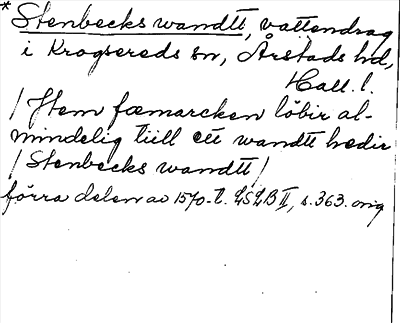 * Stenbecks wandtt, vattendrag
i Krogsereds sn, Årstads hd,
Hall. l.
/ Item fæmarcken löbir al-
mindelig tiill ett wandtt hedir
/ Stenbecks wandtt /
förra delen av 1570-t. LSLB II, s. 363. orig